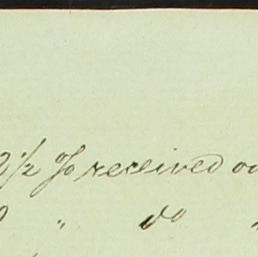 2½ % received on
" do "